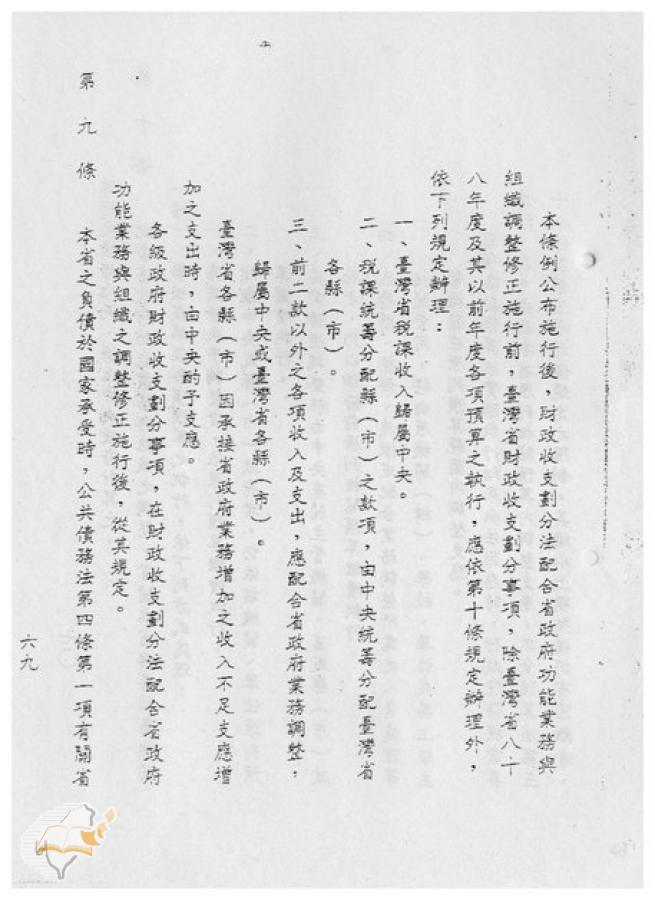 本條例公布施行後，財政收支劃分法配合省政府功能業務與
組織調整修正施行前，臺灣省財政收支劃分事項，除臺灣省八十
八年度及其以前年度各項預算之執行，應依第十條規定辦理外，
依下列規定辦理：
一、臺灣省稅課收入歸屬中央。
二、稅課統籌分配縣（市）之款項，由中央統籌分配臺灣省
各縣（市）。
三、前二款以外之各項收入及支出，應配合省政府業務調整，
歸屬中央或臺灣省各縣（市）。
臺灣省各縣（市）因承接省政府業務增加之收入不足支應增
加之支出時，由中央酌予支應。
各級政府財政收支劃分事項，在財政收支劃分法配合省政府
功能業務與組織之調整修正施行後，從其規定。
第九條　本省之負債於國家承受時，公共債務法第四條第一項有關省
六九